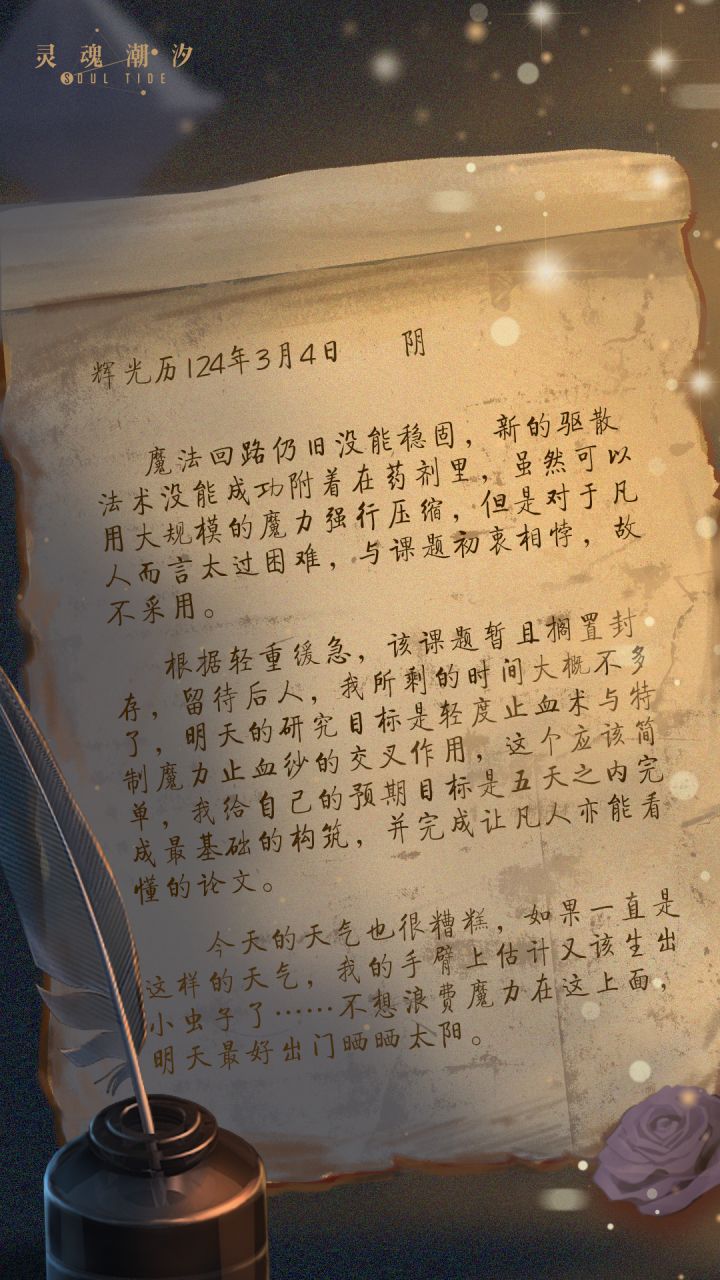 灵魂潮汐
SOUL TIDE
辉光历124年3月4日 阴
魔法回路仍旧没能稳固，新的驱散
法术没能成功附着在药剂里，虽然可以
用大规模的魔力强行压缩，但是对于凡
人而言太过困难，与课题初衷相悖，故
不采用。
根据轻重缓急，该课题暂且搁置封
存，留待后人，我所剩的时间大概不多
了，明天的研究目标是轻度止血术与特
制魔力止血纱的交叉作用，这个应该简
单，我给自己的预期目标是五天之内完
成最基础的构筑，并完成让凡人亦能看
懂的论文。
今天的天气也很糟糕，如果一直是
这样的天气，我的手臂上估计又该生出
小虫子了……不想浪费魔力在这上面，
明天最好出门晒晒太阳。